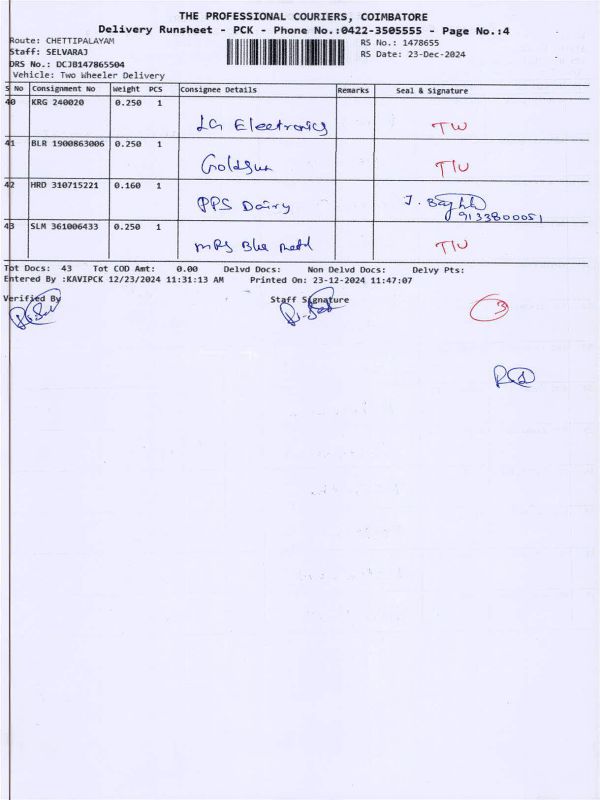 THE PROFESSIONAL COURIERS, COIMBATORE
Delivery Runsheet - PCK - Phone No.:0422-3505555 - Page No.:4
Route: CHETTIPALAYAM
RS No.: 1478655
Staff: SELVARAJ
RS Date: 23-Dec-2024
DRS No.: DCJB147865504
Vehicle: Two Wheeler Delivery
S No Consignment No Weight PCS Consignee Details Remarks Seal & Signature
40 KRG 240020 0.250 1
LG Electronics
41 BLR 1900863006 0.250 1
Goldsun
42 HRD 310715221 0.160 1
PPS Dairy
9133800051
43 SLM 361006433 0.250 1
MRS Blue
Tot Docs: 43 Tot COD Amt: 0.00 Delvd Docs: Non Delvd Docs: Delvy Pts:
Entered By :KAVIPCK 12/23/2024 11:31:13 AM Printed On: 23-12-2024 11:47:07
Verified By Staff Signature
3